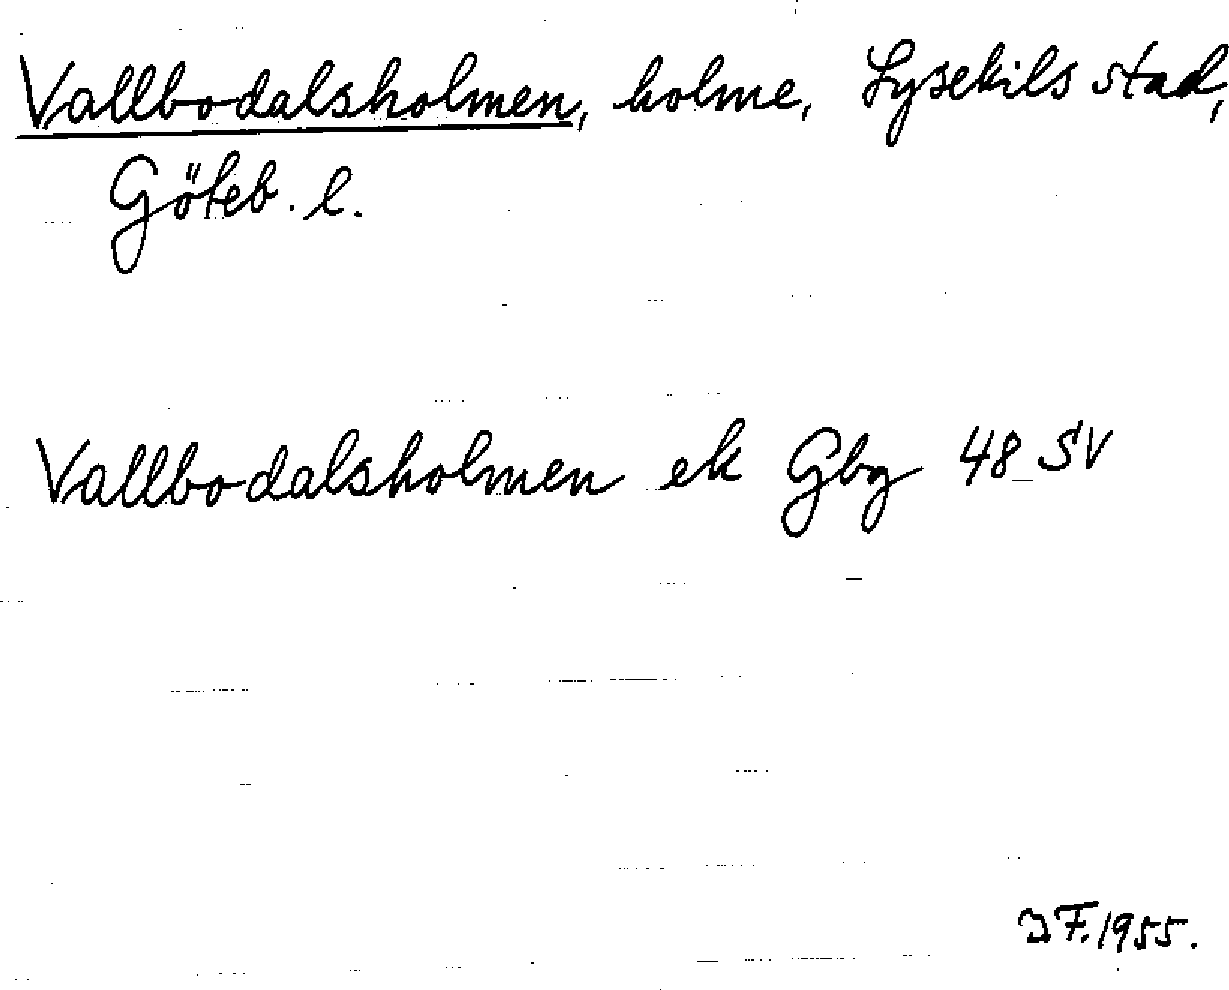 Vallbodalsholmen, holme, Lysekils stad,
Göteb. l.
Vallbodalsholmen ek Gbg 48 SV
D.F. 1955.